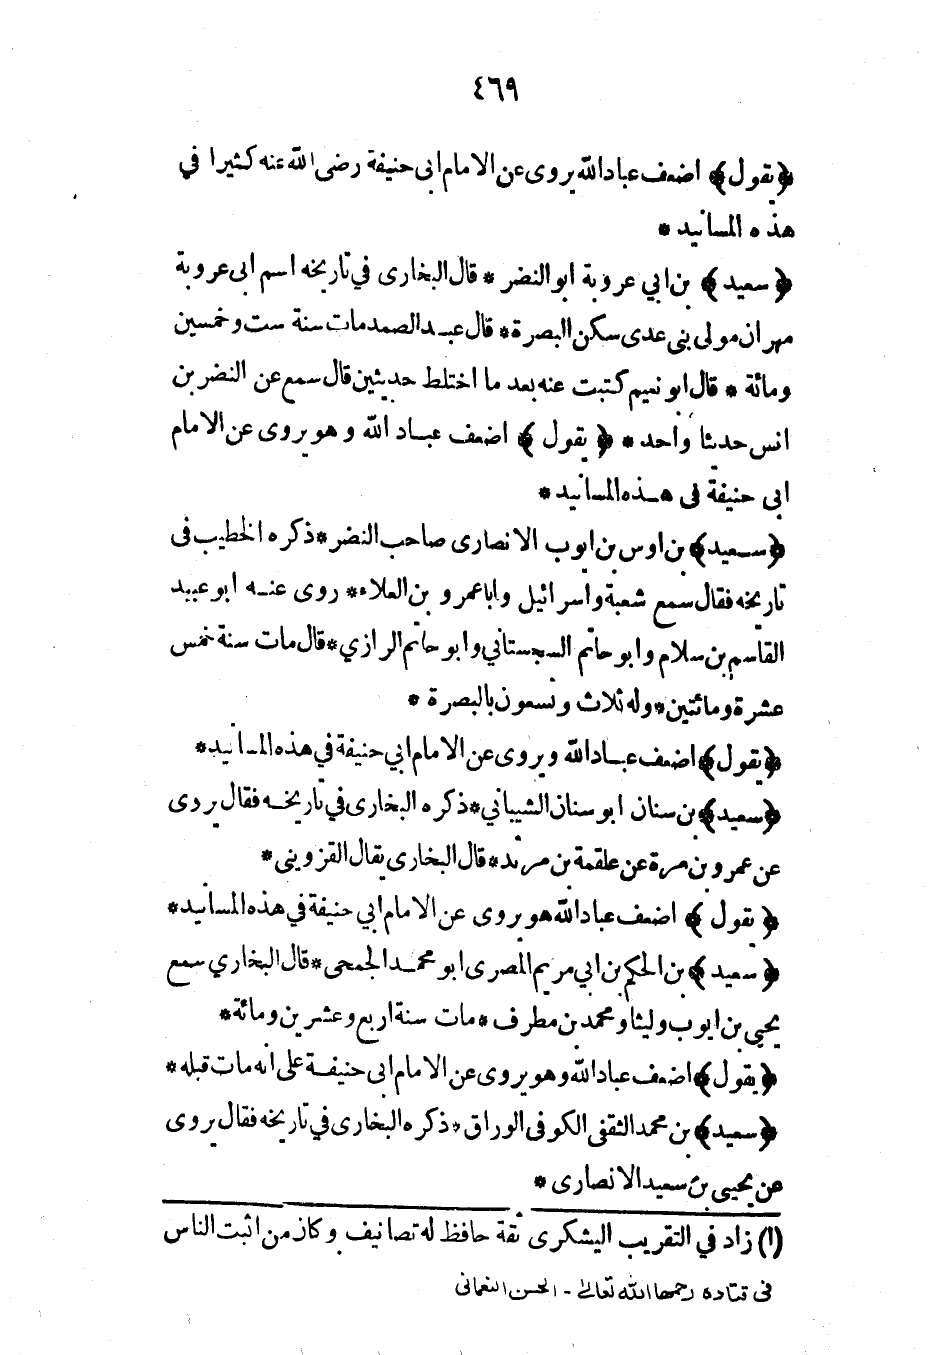 ٤٦٩
﴿يقول﴾ اضعف عباد الله يروى عن الامام ابى حنيفة رضى الله عنه كثيرا في
هذه المسانيد *
﴿سعيد﴾ بن ابي عروبة ابو النضر * قال البخارى في تاريخه اسم ابى عروبة
مهران مولى بنى عدى سكن البصرة * قال عبد الصمد مات سنة ست و خمسين
ومائة * قال ابو نعيم كتبت عنه بعد ما اختلط حديثين قال سمع عن النضر بن
انس حديثا واحد * ﴿يقول﴾ اضعف عباد الله وهو يروى عن الامام
ابى حنيفة فى هذه المسانيد *
﴿سعيد﴾ بن اوس بن ايوب الانصارى صاحب النضر * ذكره الخطيب فى
تاريخه فقال سمع شعبة واسرائيل واباعمرو بن العلاء * روى عنه ابو عبيد
القاسم بن سلام وابو حاتم السجستاني وابو حاتم الرازي * قال مات سنة خمس
عشرة ومائتين * وله ثلاث وتسعون بالبصرة *
﴿يقول﴾ اضعف عباد الله ويروى عن الامام ابي حنيفة في هذه المسانيد *
﴿سعيد﴾ بن سنان ابو سنان الشيباني * ذكره البخارى في تاريخه فقال يروى
عن عمرو بن مرة عن علقمة بن مرثد * قال البخارى يقال القزوينى *
﴿يقول﴾ اضعف عباد الله هو يروى عن الامام ابي حنيفة في هذه المسانيد *
﴿سعيد﴾ بن الحكم بن ابي مريم المصرى ابو محمد الجمحى * قال البخاري سمع
يحيى بن ايوب وليثا ومحمد بن مطرف * مات سنة اربع وعشرين ومائة *
﴿يقول﴾ اضعف عباد الله وهو يروى عن الامام ابى حنيفة على انه مات قبله *
﴿سعيد﴾ بن محمد الثقفى الكوفى الوراق * ذكره البخارى في تاريخه فقال يروى
عن يحيى بن سعيد الانصارى *
(١) زاد في التقريب اليشكرى ثقة حافظ له تصانيف وكان من اثبت الناس
فى قتاده رحمها الله تعالى - الحسن النعمانى